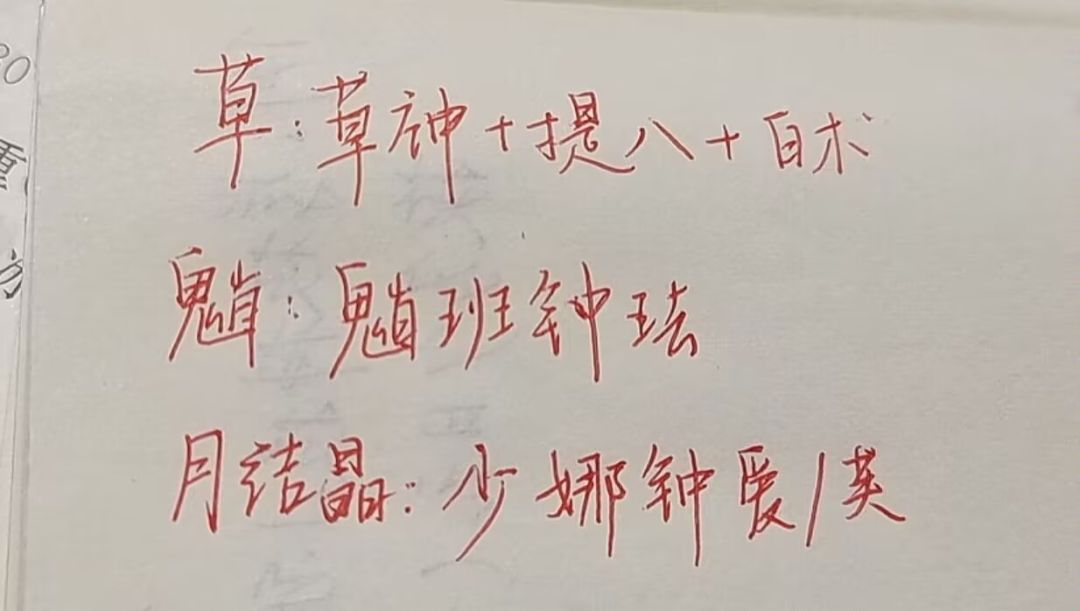 草:草神+提八+白术
魈:魈班钟珐
月结晶:少娜钟爱/英